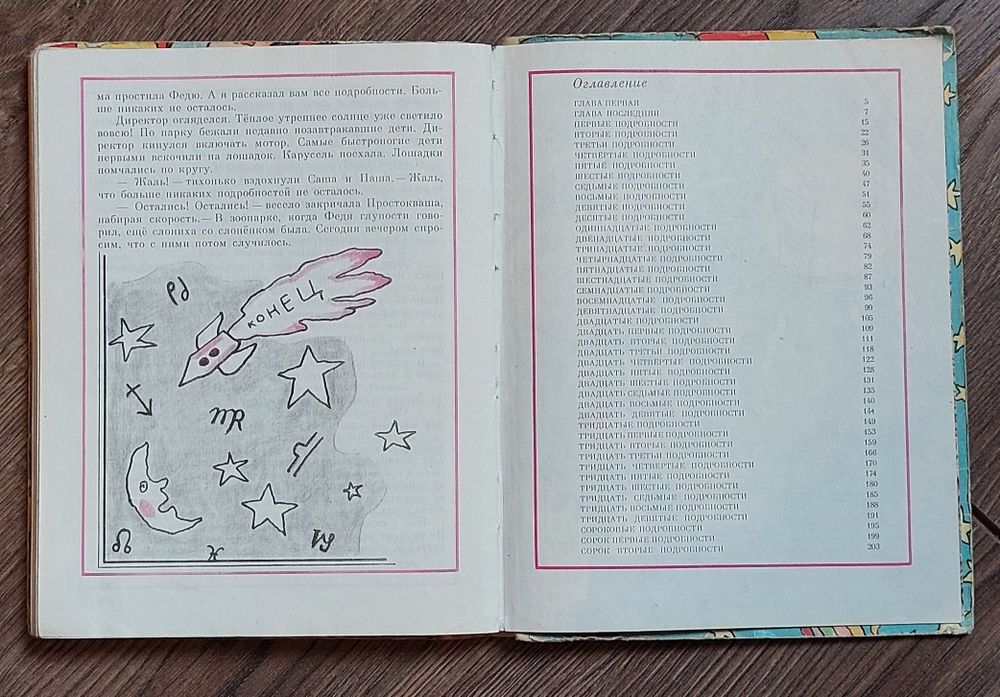 ма простила Федю. А я рассказал вам все подробности. Боль-
ше никаких не осталось.
Директор огляделся. Тёплое утреннее солнце уже светило
вовсю! По парку бежали недавно позавтракавшие дети. Ди-
ректор кинулся включать мотор. Самые быстроногие дети
первыми вскочили на лошадок. Карусель поехала. Лошадки
помчались по кругу.
— Жаль! — тихонько вздохнули Саша и Паша. — Жаль,
что больше никаких подробностей не осталось.
— Остались! Остались! — весело закричала Простокваша,
набирая скорость. — В зоопарке, когда Федя глупости гово-
рил, ещё слониха со слонёнком была. Сегодня вечером спро-
сим, что с ними потом случилось.
КОНЕЦ
Оглавление
ГЛАВА ПЕРВАЯ 5
ГЛАВА ПОСЛЕДНЯЯ 7
ПЕРВЫЕ ПОДРОБНОСТИ 15
ВТОРЫЕ ПОДРОБНОСТИ 22
ТРЕТЬИ ПОДРОБНОСТИ 26
ЧЕТВЁРТЫЕ ПОДРОБНОСТИ 31
ПЯТЫЕ ПОДРОБНОСТИ 35
ШЕСТЫЕ ПОДРОБНОСТИ 40
СЕДЬМЫЕ ПОДРОБНОСТИ 47
ВОСЬМЫЕ ПОДРОБНОСТИ 51
ДЕВЯТЫЕ ПОДРОБНОСТИ 55
ДЕСЯТЫЕ ПОДРОБНОСТИ 60
ОДИННАДЦАТЫЕ ПОДРОБНОСТИ 62
ДВЕНАДЦАТЫЕ ПОДРОБНОСТИ 68
ТРИНАДЦАТЫЕ ПОДРОБНОСТИ 74
ЧЕТЫРНАДЦАТЫЕ ПОДРОБНОСТИ 79
ПЯТНАДЦАТЫЕ ПОДРОБНОСТИ 82
ШЕСТНАДЦАТЫЕ ПОДРОБНОСТИ 87
СЕМНАДЦАТЫЕ ПОДРОБНОСТИ 93
ВОСЕМНАДЦАТЫЕ ПОДРОБНОСТИ 96
ДЕВЯТНАДЦАТЫЕ ПОДРОБНОСТИ 99
ДВАДЦАТЫЕ ПОДРОБНОСТИ 105
ДВАДЦАТЬ ПЕРВЫЕ ПОДРОБНОСТИ 109
ДВАДЦАТЬ ВТОРЫЕ ПОДРОБНОСТИ 111
ДВАДЦАТЬ ТРЕТЬИ ПОДРОБНОСТИ 118
ДВАДЦАТЬ ЧЕТВЁРТЫЕ ПОДРОБНОСТИ 122
ДВАДЦАТЬ ПЯТЫЕ ПОДРОБНОСТИ 128
ДВАДЦАТЬ ШЕСТЫЕ ПОДРОБНОСТИ 131
ДВАДЦАТЬ СЕДЬМЫЕ ПОДРОБНОСТИ 135
ДВАДЦАТЬ ВОСЬМЫЕ ПОДРОБНОСТИ 140
ДВАДЦАТЬ ДЕВЯТЫЕ ПОДРОБНОСТИ 144
ТРИДЦАТЫЕ ПОДРОБНОСТИ 149
ТРИДЦАТЬ ПЕРВЫЕ ПОДРОБНОСТИ 153
ТРИДЦАТЬ ВТОРЫЕ ПОДРОБНОСТИ 159
ТРИДЦАТЬ ТРЕТЬИ ПОДРОБНОСТИ 166
ТРИДЦАТЬ ЧЕТВЁРТЫЕ ПОДРОБНОСТИ 170
ТРИДЦАТЬ ПЯТЫЕ ПОДРОБНОСТИ 174
ТРИДЦАТЬ ШЕСТЫЕ ПОДРОБНОСТИ 180
ТРИДЦАТЬ СЕДЬМЫЕ ПОДРОБНОСТИ 185
ТРИДЦАТЬ ВОСЬМЫЕ ПОДРОБНОСТИ 188
ТРИДЦАТЬ ДЕВЯТЫЕ ПОДРОБНОСТИ 191
СОРОКОВЫЕ ПОДРОБНОСТИ 195
СОРОК ПЕРВЫЕ ПОДРОБНОСТИ 199
СОРОК ВТОРЫЕ ПОДРОБНОСТИ 203